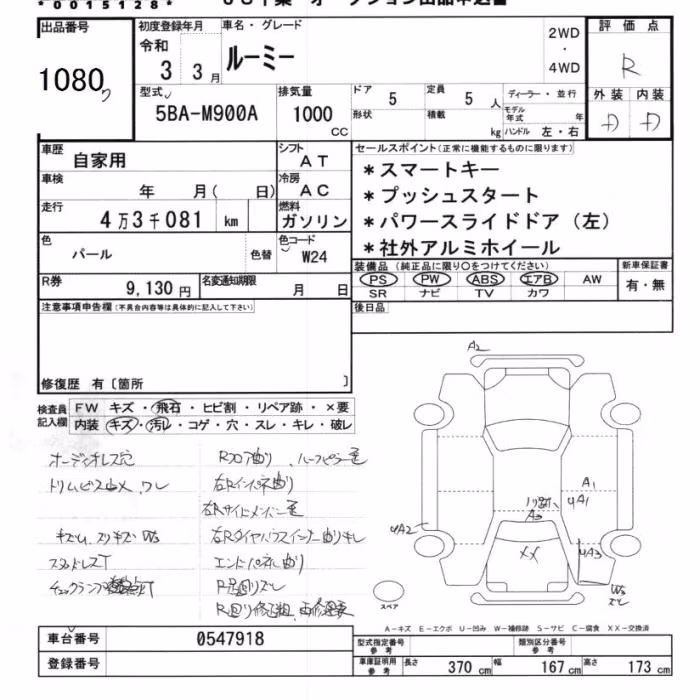 *0015128*
出品番号 初度登録年月 車名・グレード 評価点
1080 令和 3 3月 ルーミー 2WD・4WD R
型式 5BA-M900A 排気量 1000 CC
ドア 5 定員 5 人 ディーラー・並行
形状 積載 kg モデル年式 年 ハンドル 左・右
外装 内装
D D
車歴 自家用 シフト AT
車検 年 月( 日) 冷房 AC
走行 4万3千081 km 燃料 ガソリン
色 パール 色替 色コード W24
R券 9,130円 名変通知期限 月 日
セールスポイント(正常に機能するものに限ります)
*スマートキー
*プッシュスタート
*パワースライドドア(左)
*社外アルミホイール
装備品(純正品に限り○をつけてください) 新車保証書
PS PW ABS エアB AW 有・無
SR ナビ TV カワ
後日品
注意事項申告欄(不具合内容等は具体的に記入して下さい)
修復歴 有〔箇所 〕
検査員記入欄 FW キズ・飛石・ヒビ割・リペア跡・×要
内装 キズ・汚レ・コゲ・穴・スレ・キレ・破レ
オーディオレス穴
RフロアÅ曲り、
右Rインパネ曲り
右Rサイドメンバー
スタッドレスT
エンドパネル曲り
A2
A1
UA1
UA2
UA3
XX
スペア
A-キズ E-エクボ U-凹み W-補修跡 S-サビ C-腐食 XX-交換済
車台番号 0547918
登録番号
型式指定番号 参考 類別区分番号 参考
車庫証明用 参考 長さ 370 cm 幅 167 cm 高さ 173 cm